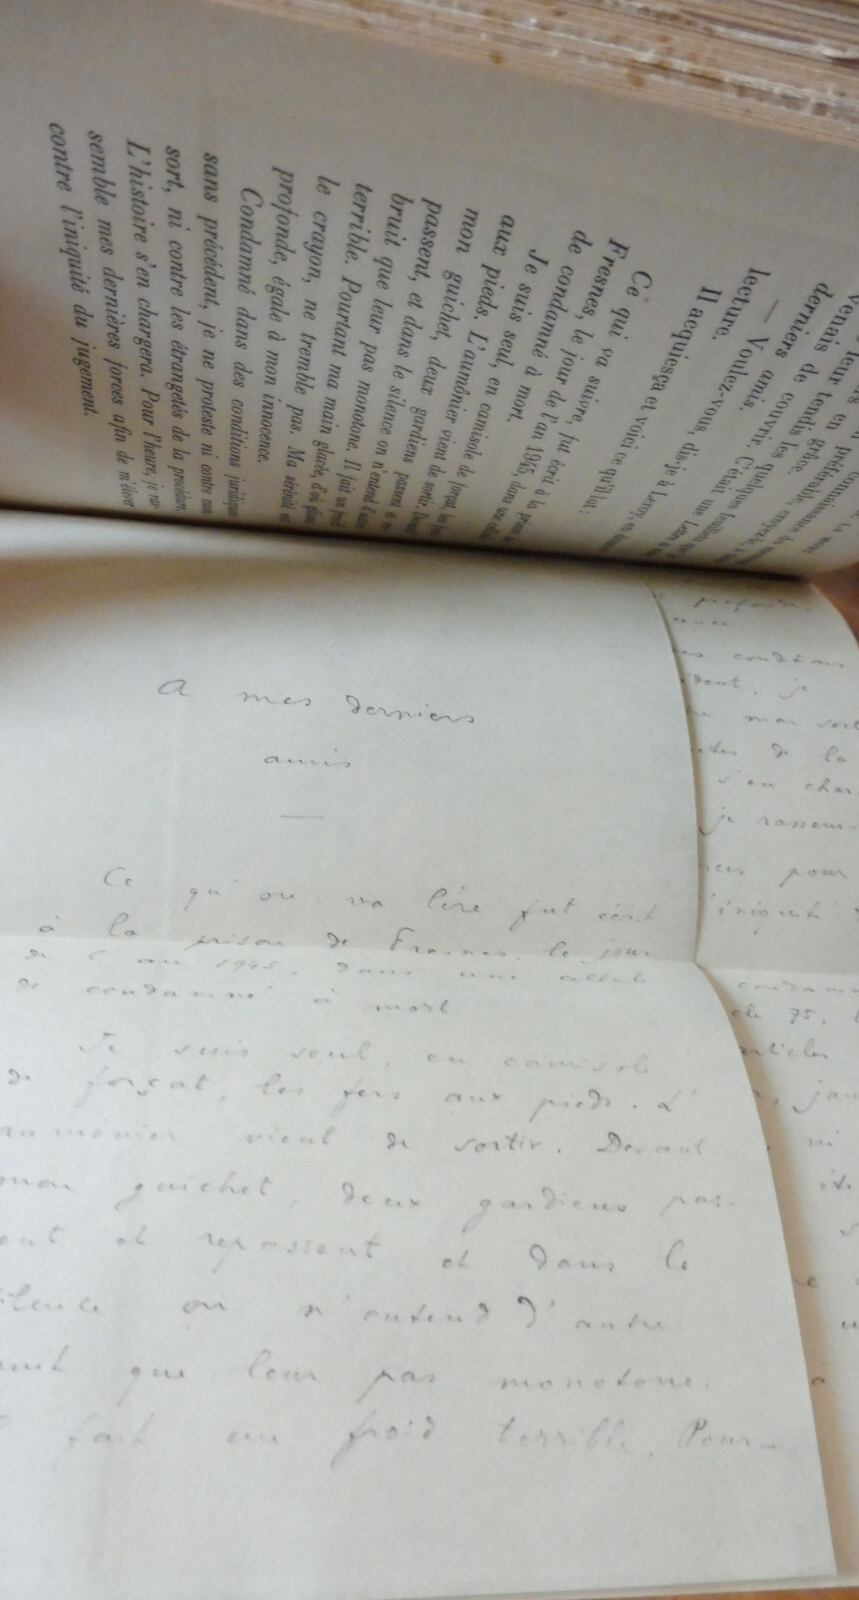 venais de couvrir. C'était une
derniers amis.
— Voulez-vous, dis-je à Leroy, en
lecture.
Il acquiesça et voici ce qu'il lut :
Ce qui va suivre, fut écrit à la prison de
Fresnes, le jour de l'an 1945, dans une
de condamné à mort.
Je suis seul, en camisole de forçat, les fers
aux pieds. L'aumônier vient de sortir. Devant
mon guichet, deux gardiens passent et re-
passent, et dans le silence on n'entend d'autre
bruit que leur pas monotone. Il fait un froid
terrible. Pourtant ma main glacée, d'où glisse
le crayon, ne tremble pas. Ma sérénité est
profonde, égale à mon innocence.
Condamné dans des conditions juridiques
sans précédent, je ne proteste ni contre mon
sort, ni contre les étrangetés de la procédure.
L'histoire s'en chargera. Pour l'heure, je ras-
semble mes dernières forces afin de m'élever
contre l'iniquité du jugement.
A mes derniers
amis
Ce qu'on va lire fut écrit
à la prison de Fresnes, le jour
de l'an 1945, dans une cellule
de condamné à mort
Je suis seul, en camisole
de forçat, les fers aux pieds. L'
aumônier vient de sortir. Devant
mon guichet, deux gardiens pas-
ent et repassent et dans le
ilence on n'entend d'autre
uit que leur pas monotone.
fait un froid terrible. Pour-
profonde,
conditions
dent, je
mon sort
de la
s'en char
je rassem-
pour
l'iniquité
condamn
de 75,
articles
ni
à